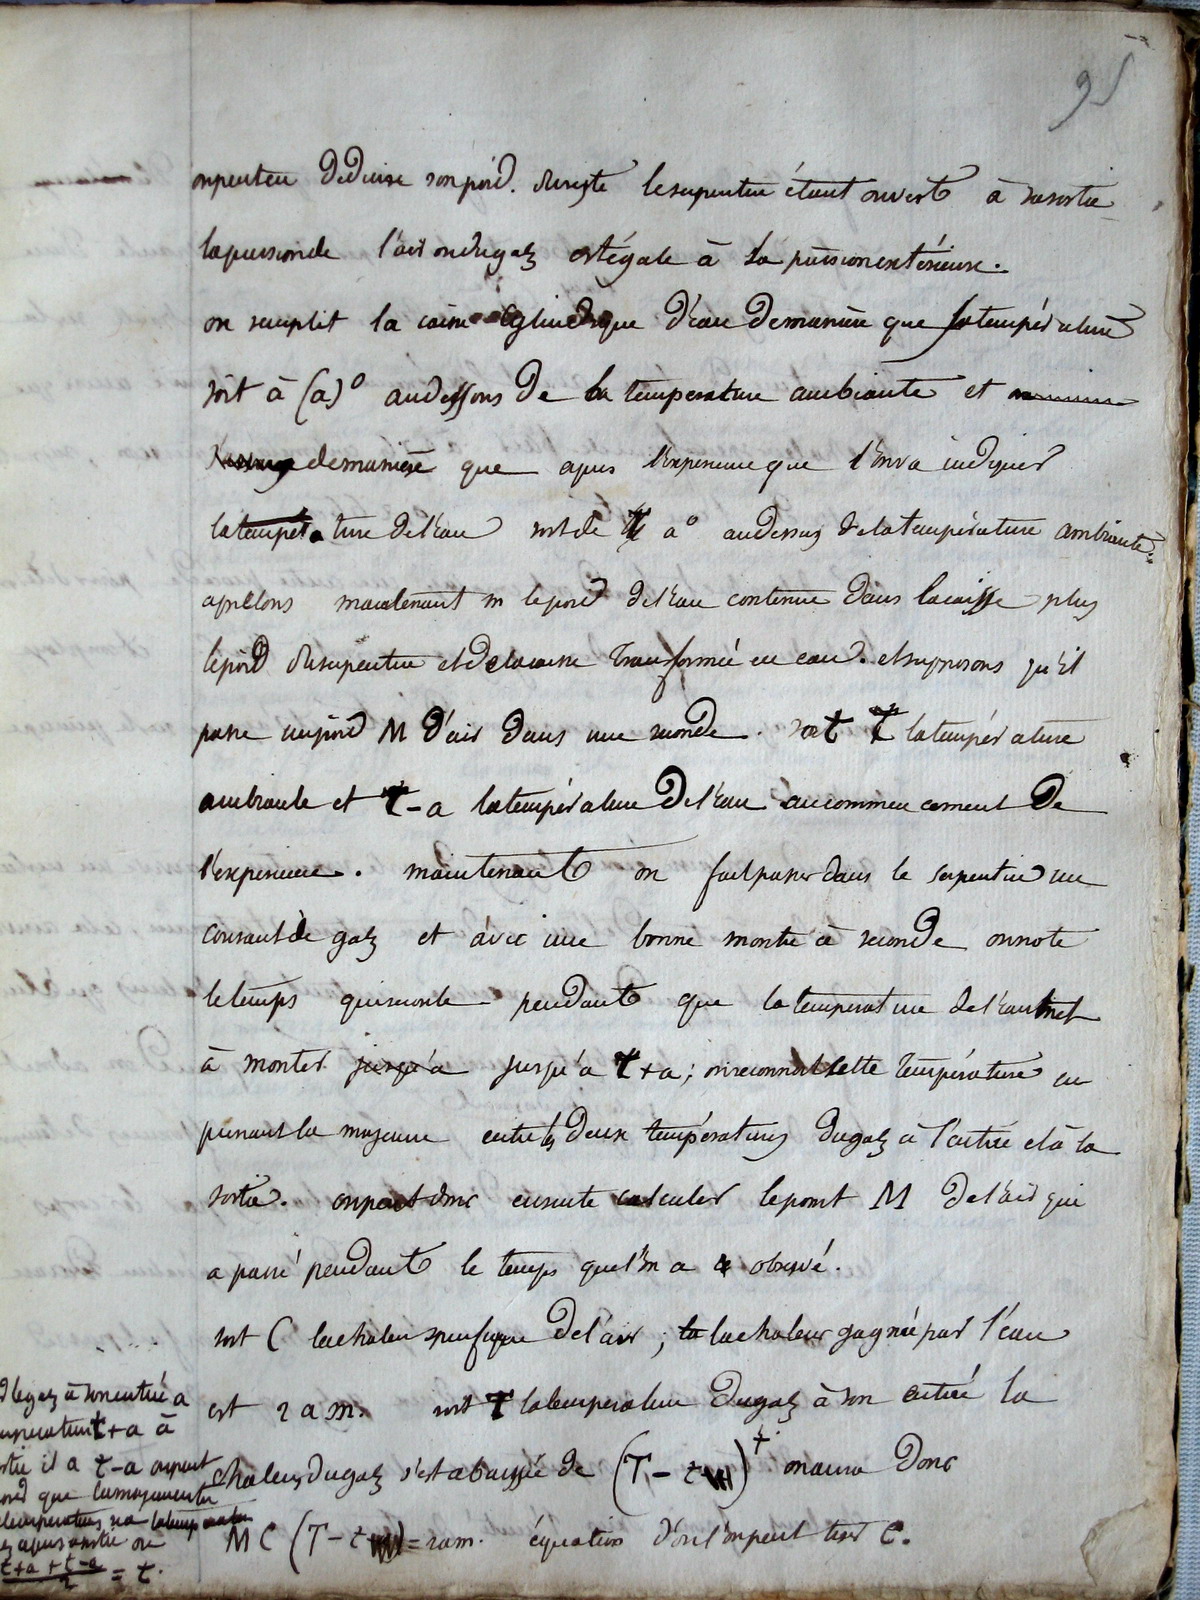 95
on peut en déduire son poid. Du reste le serpentin étant ouvert à sa sortie
la pression de l'air ou du gaz est égale à la pression extérieure.
on remplit la caisse cylindrique d'eau de manière que la température
soit à (a)° au dessous de la température ambiante et
de manière que apres l'experience que l'on va indiquer
la température de l'eau soit de a° au dessus de la température ambiante.
apellons maintenant m le poid de l'eau contenue dans la caisse plus
le poid du serpentin et de la caisse transformée en eau. et supposons qu'il
passe un poid M d'air dans une seconde. soit t la température
ambiante et t-a la température de l'eau au commencement de
l'experience. maintenant on fait passer dans le serpentin un
courant de gaz et avec une bonne montre à seconde on note
le temps qui s'écoule pendant que la temperature de l'eau met
à monter jusqu'a jusqu'a t+a; on reconnoit cette température en
prenant la moyenne entre les deux températures du gaz à l'entrée et à la
sortie. on peut donc ensuite calculer le poid M de l'air qui
a passé pendant le temps que l'on a observé.
soit C la chaleur specifique de l'air; la la chaleur gagnée par l'eau
est 2am. soit T la temperature du gaz à son entrée la
chaleur du gaz s'est abaissée de (T-t)+ on aura donc
MC (T-t)=2am. équation d'où l'on peut tirer C.
le gaz à son entrée a
t+a à
sortie il a t-a on peut
que la moyenne
températures
sortie ou
t+a+t-a/2 = t.